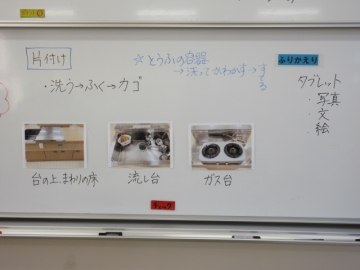 片付け
・洗う→ふく→カゴ
☆とうふの容器
→洗ってかわかす→す
てる
ふりかえり
タブレット
・写真
・文
・絵
台の上、まわりの床
流し台
ガス台